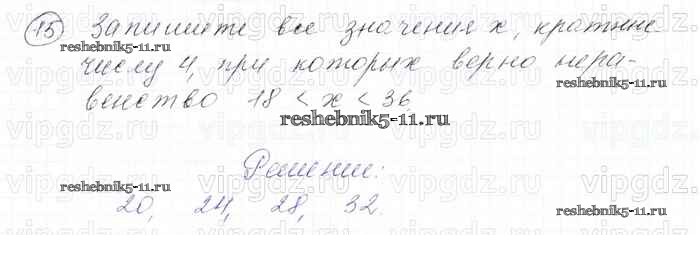 15 Запишите все значения x, кратные
числу 4, при которых верно нера-
венство 18 < x < 36
Решение:
20, 24, 28, 32.
reshebnik5-11.ru
reshebnik5-11.ru
reshebnik5-11.ru
reshebnik5-11.ru
reshebnik5-11.ru
vipgdz.ru vipgdz.ru vipgdz.ru vipgdz.ru